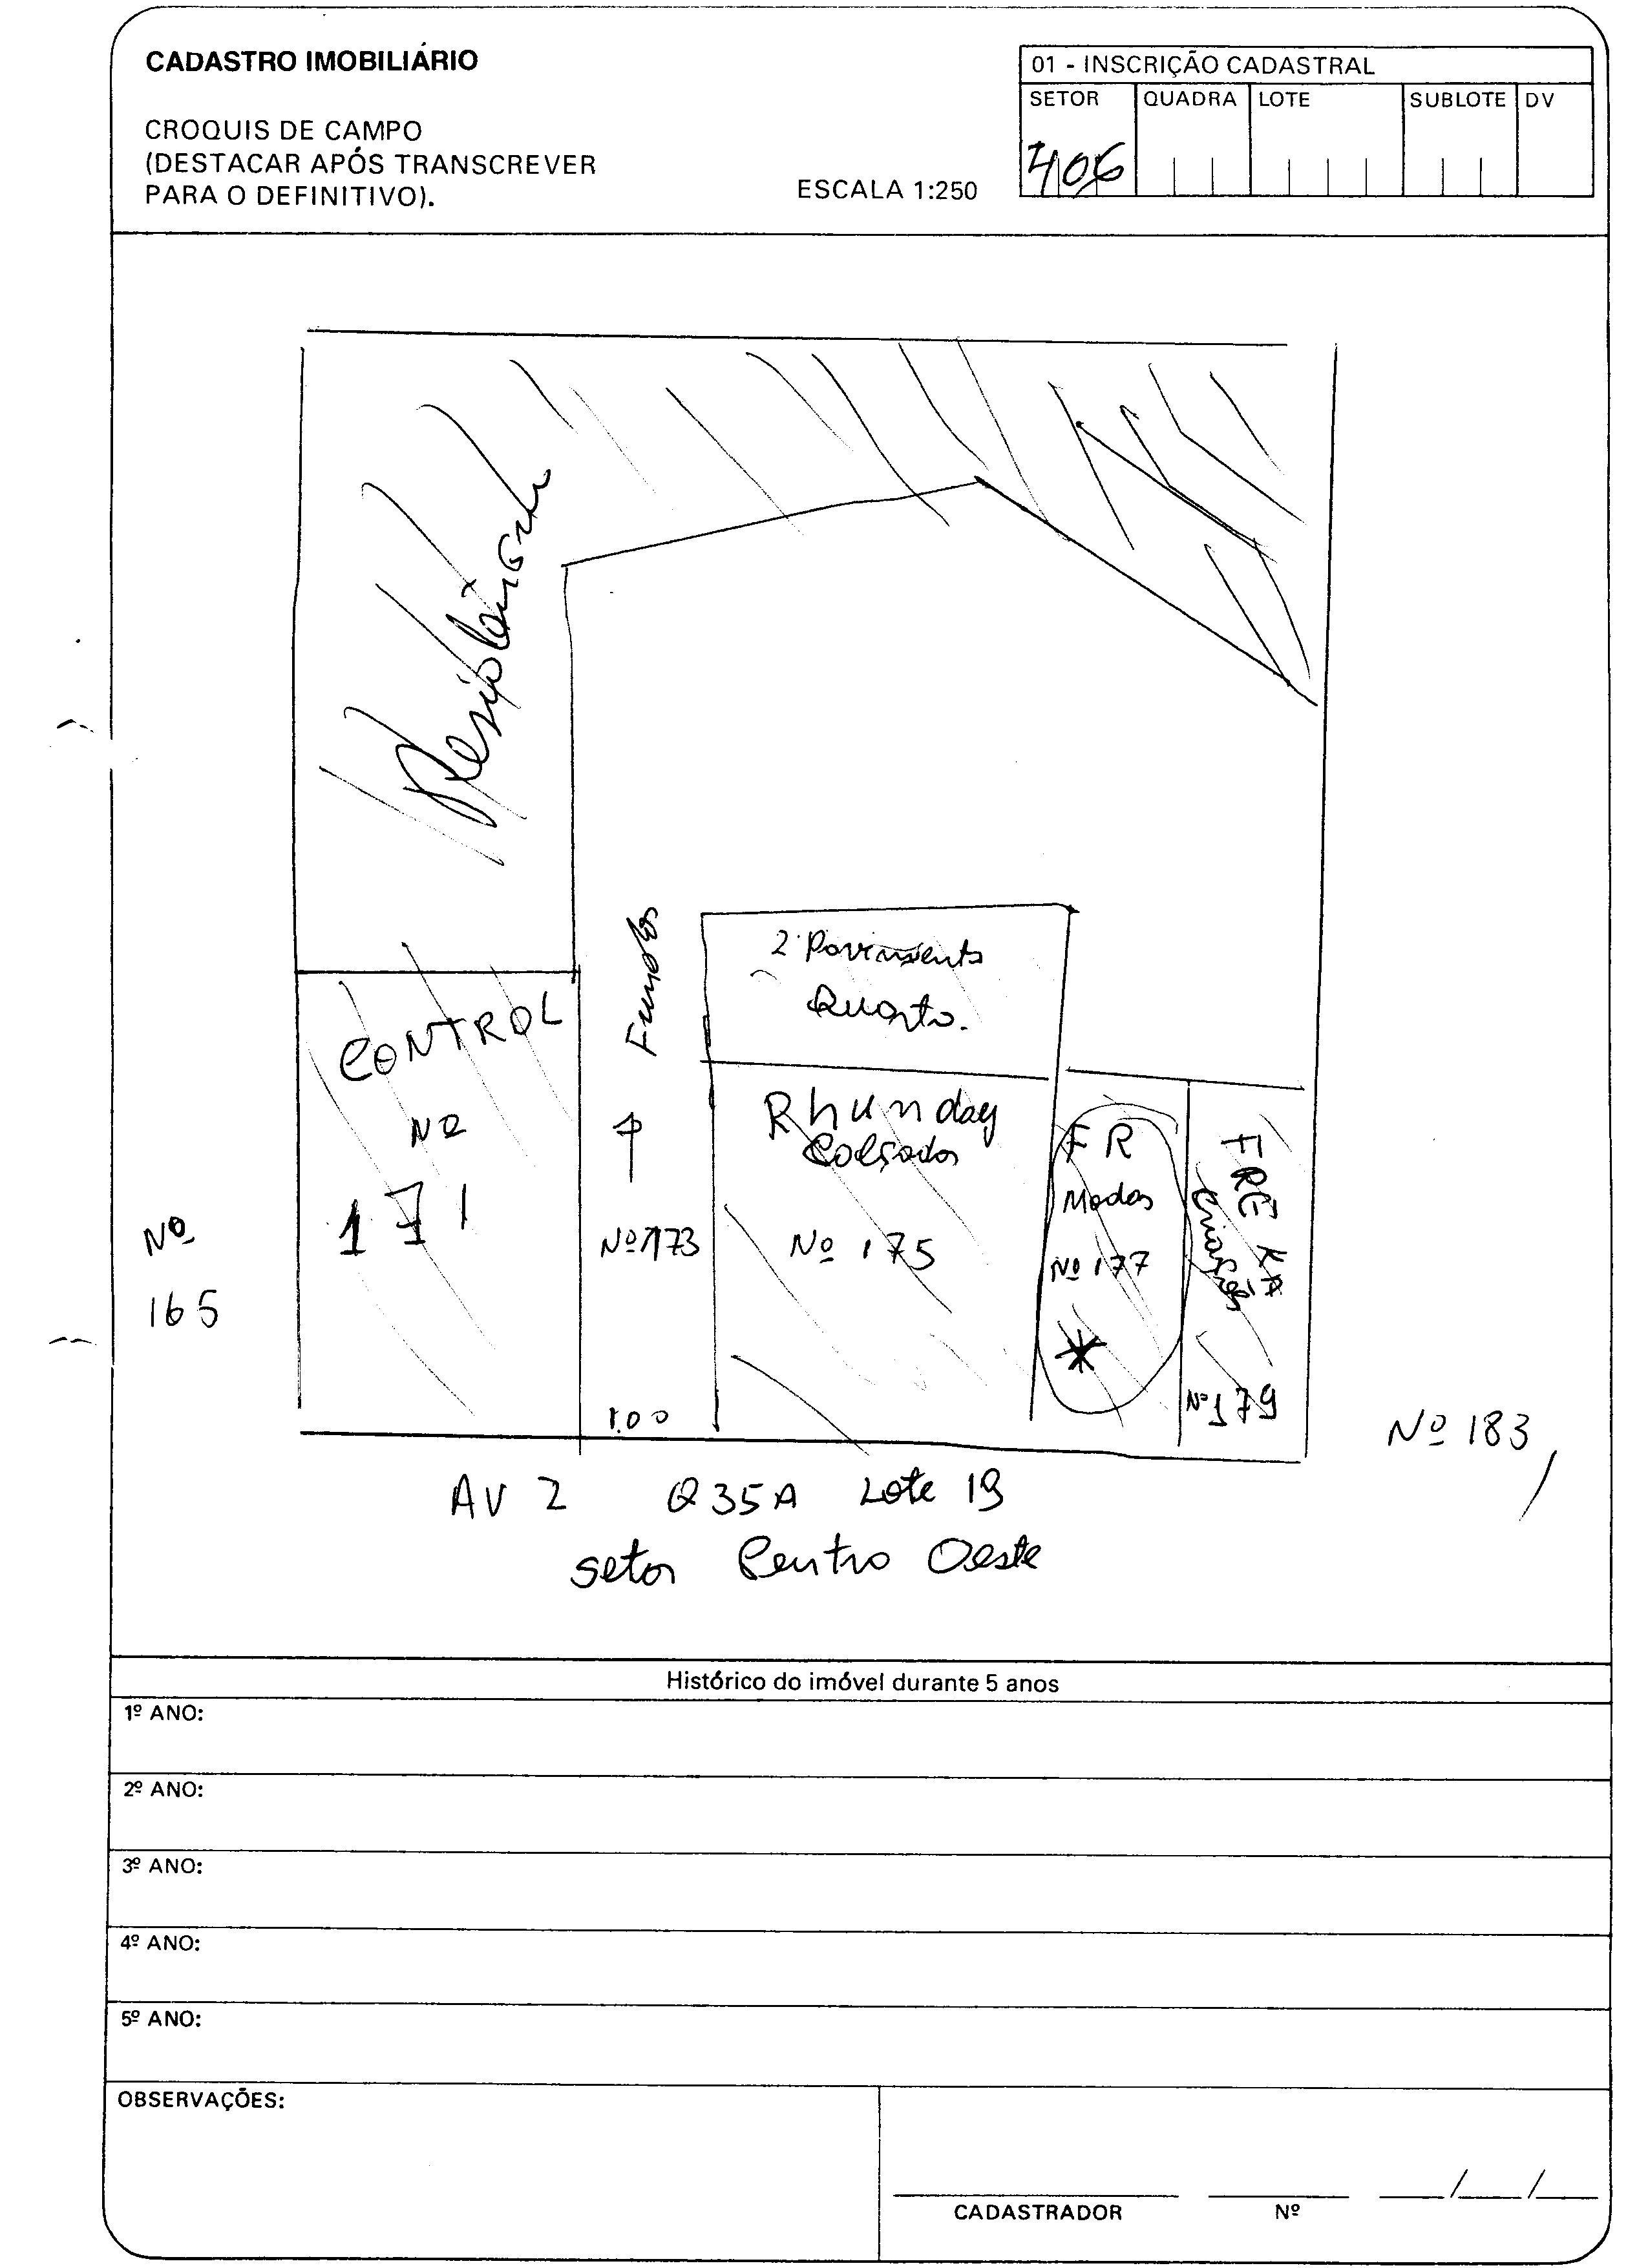 CADASTRO IMOBILIÁRIO
CROQUIS DE CAMPO
(DESTACAR APÓS TRANSCREVER
PARA O DEFINITIVO).
ESCALA 1:250
01 - INSCRIÇÃO CADASTRAL
SETOR QUADRA LOTE SUBLOTE DV
406
Fundos
2º Pavimento
Quarto.
CONTROL
Nº
171
Nº 173
1.00
Rhunday
Calçados
Nº 175
FR
Modas
Nº 177
*
FRE KA
Criações
Nº 179
Nº
165
Nº 183
AV 2 Q 35A Lote 19
setor Centro Oeste
Histórico do imóvel durante 5 anos
1º ANO:
2º ANO:
3º ANO:
4º ANO:
5º ANO:
OBSERVAÇÕES:
CADASTRADOR Nº